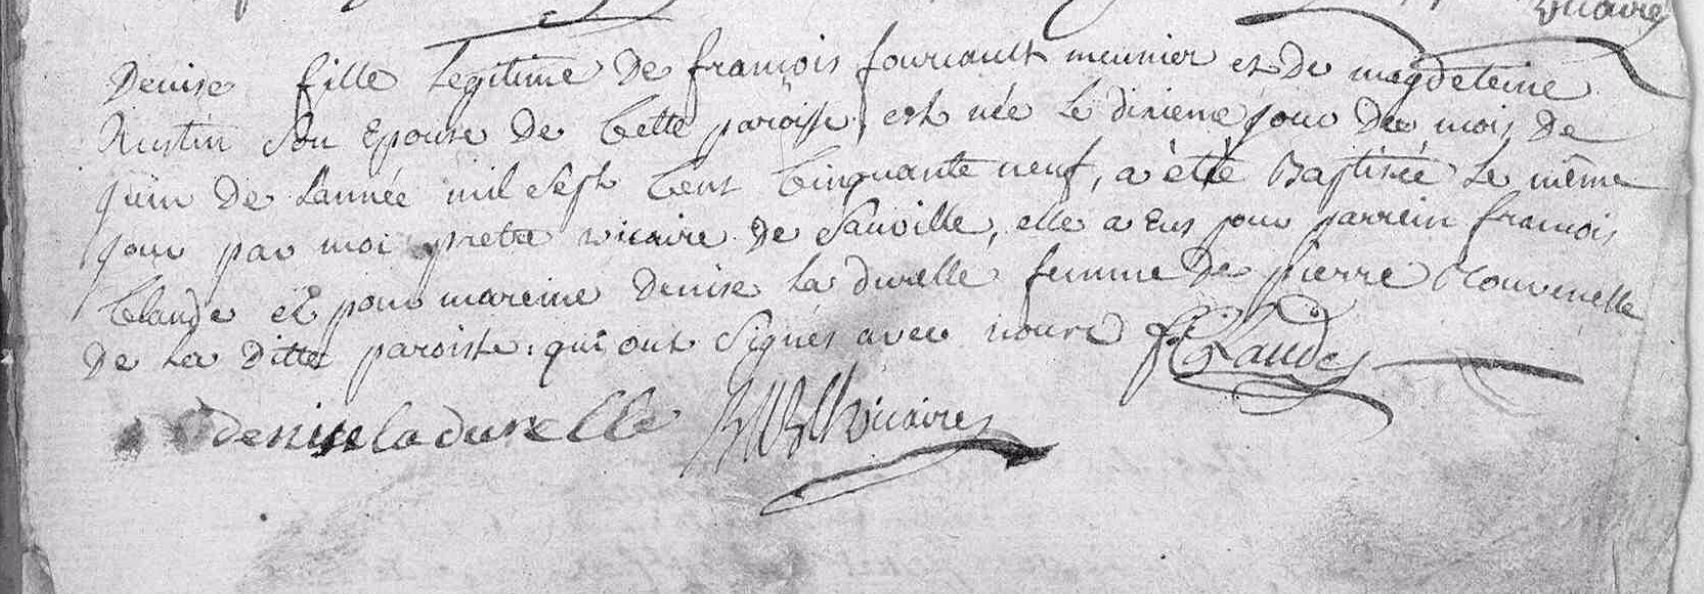 vicaire
Denise fille legitime De françois fourcault meunier et De magdeleine
Rustin son Epouse De Cette paroisse, est née Le dixieme jour Du mois De
juin De Lannée mil sept Cent Cinquante neuf, a èté Baptisée Le même
jour par moi pretre vicaire De Sauville, elle a Eus pour parrein francois
Claude et pour mareine Denise La durelle femme De pierre Thouvenelle
De La Ditte paroisse, qui ont Signés avec nous F Claude
denise la durelle vicaire